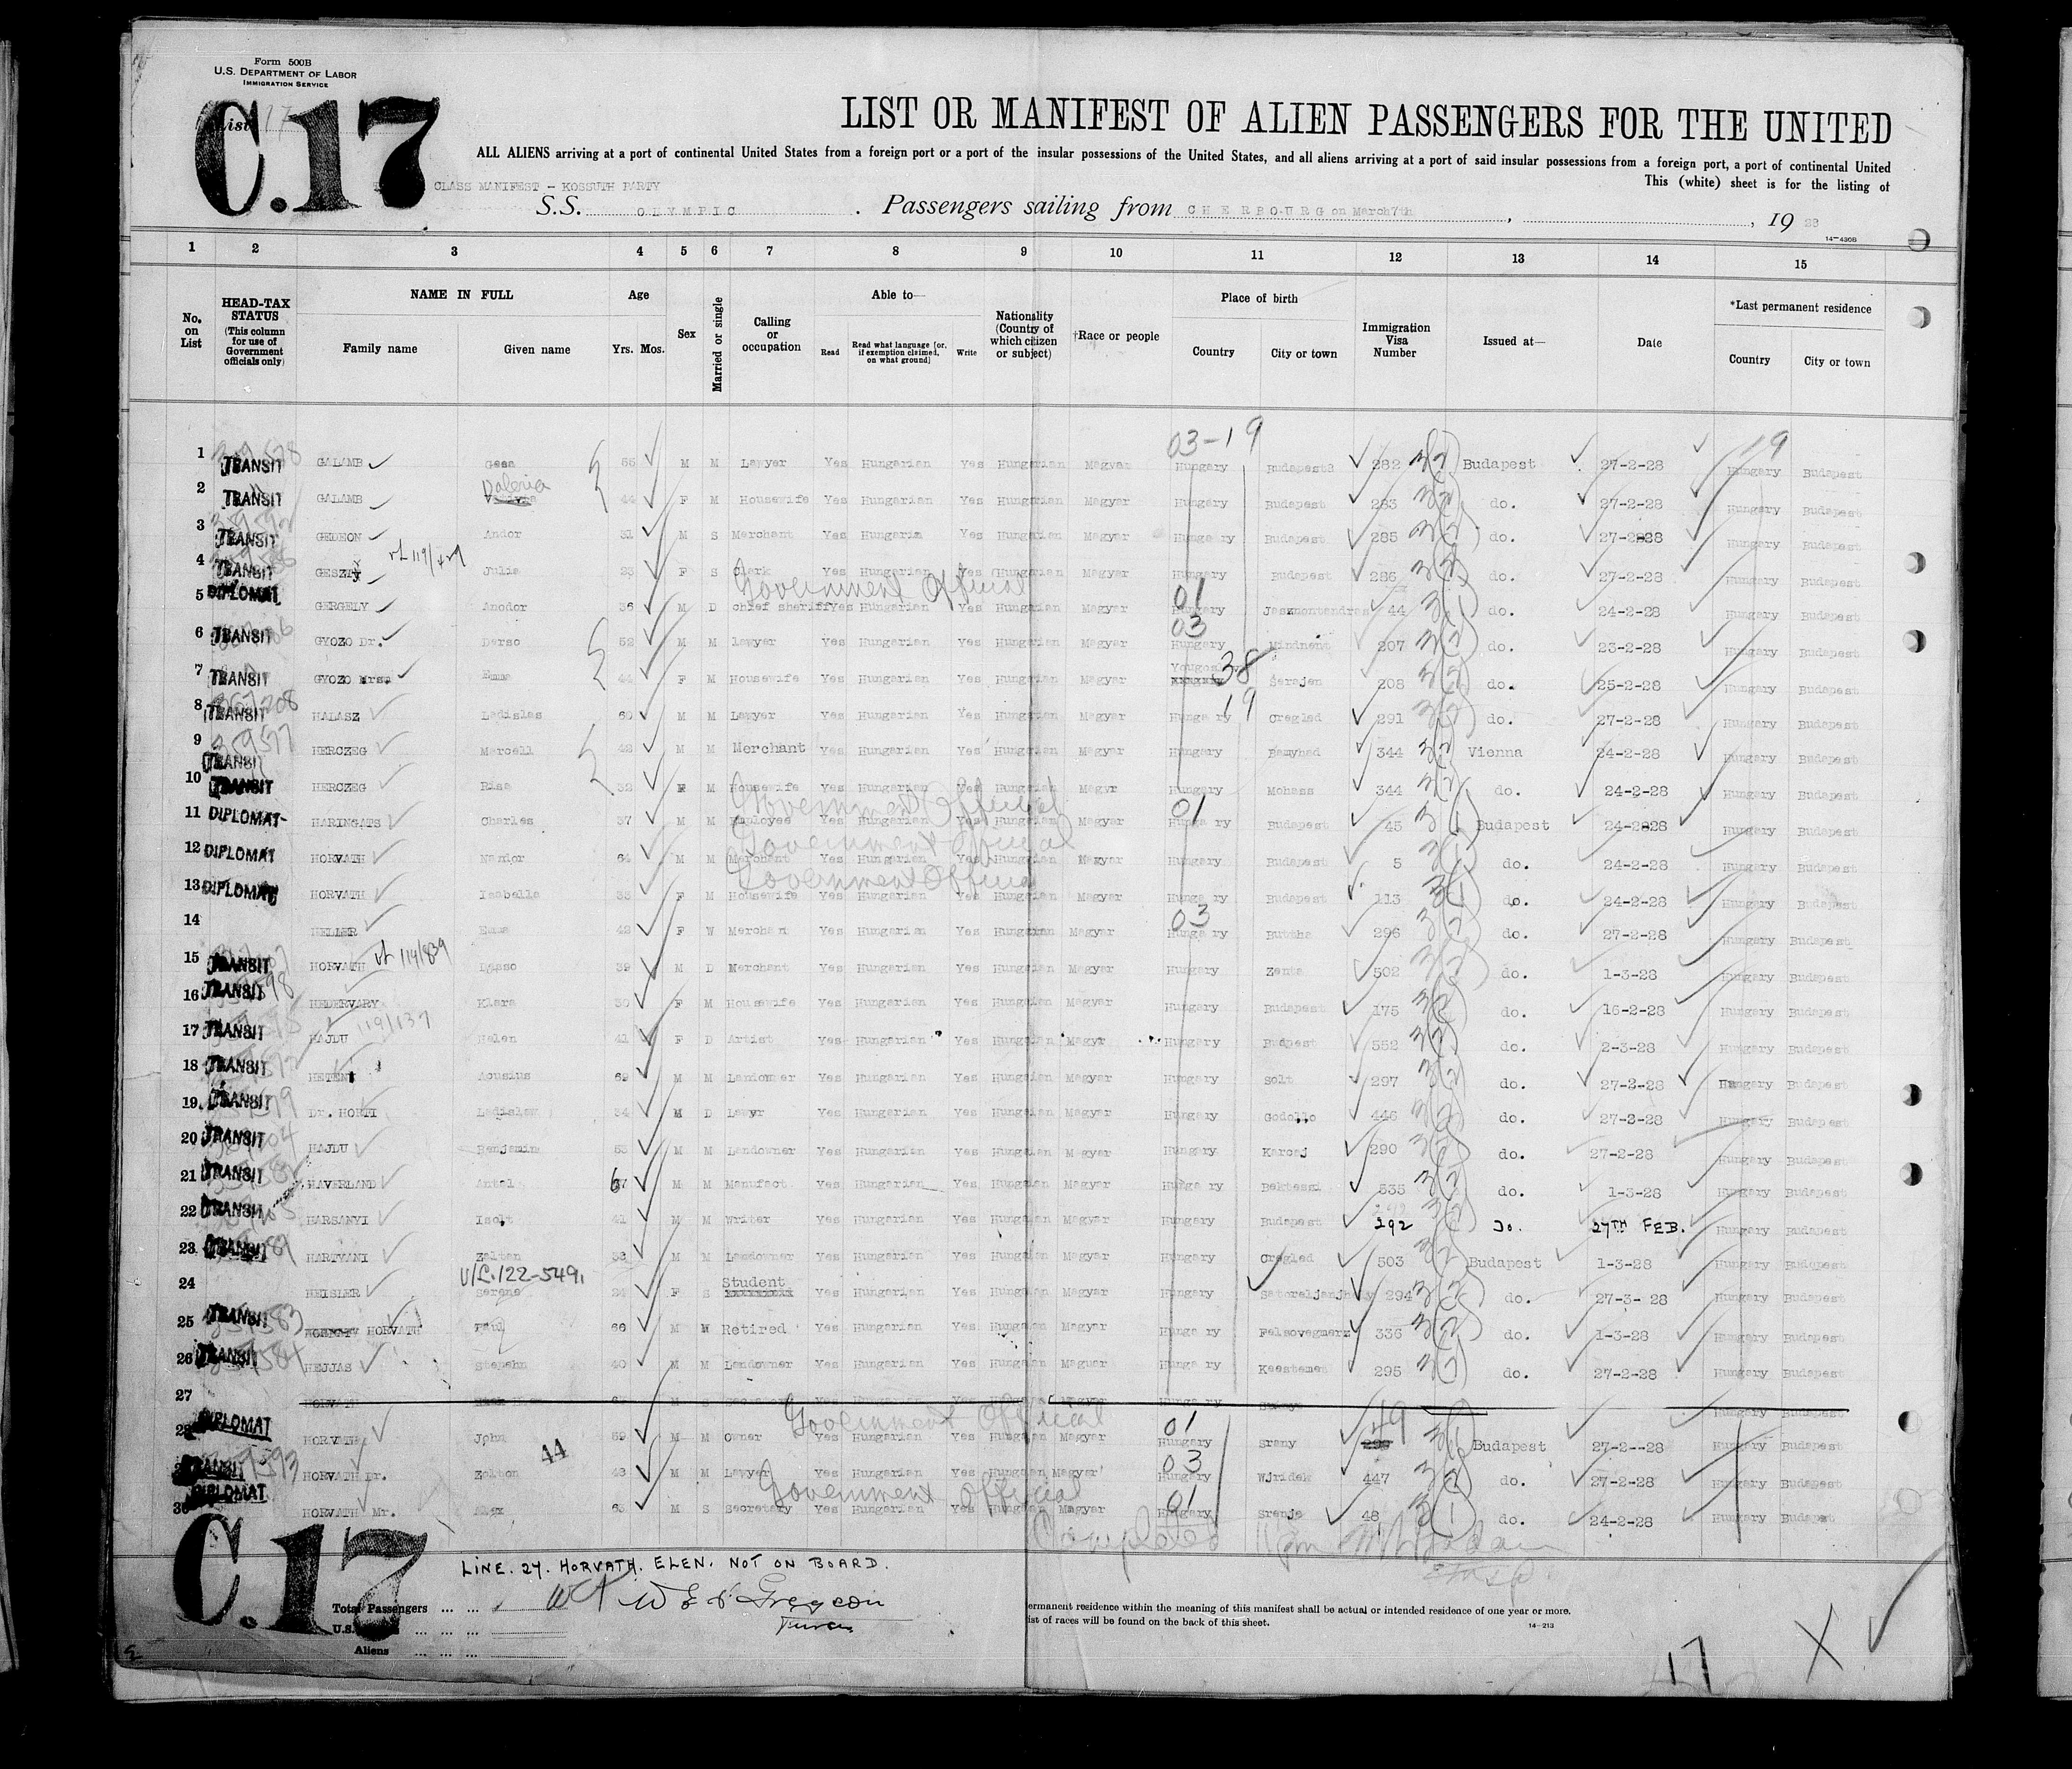 Form 500B
U.S. DEPARTMENT OF LABOR
IMMIGRATION SERVICE
List 17
C.17
LIST OR MANIFEST OF ALIEN PASSENGERS FOR THE UNITED
ALL ALIENS arriving at a port of continental United States from a foreign port or a port of the insular possessions of the United States, and all aliens arriving at a port of said insular possessions from a foreign port, a port of continental United
This (white) sheet is for the listing of
CLASS MANIFEST - KOSSUTH PARTY
S.S. OLYMPIC. Passengers sailing from CHERBOURG on March7th, , 19 28
14—430B
1 2 3 4 5 6 7 8 9 10 11 12 13 14 15
No. on List
HEAD-TAX STATUS (This column for use of Government officials only)
NAME IN FULL Family name Given name
Age Yrs. Mos.
Sex
Married or single
Calling or occupation
Able to— Read Read what language [or, if exemption claimed, on what ground] Write
Nationality (Country of which citizen or subject)
†Race or people
Place of birth Country City or town
Immigration Visa Number
Issued at—
Date
*Last permanent residence Country City or town
03-19 19
1 TRANSIT GALAMB Geza 55 M M Lawyer Yes Hungarian Yes Hungarian Magyar Hungary Budapest 282 Budapest 27-2-28 Hungary Budapest
2 TRANSIT GALAMB Valeria 44 F M Housewife Yes Hungarian Yes Hungarian Magyar Hungary Budapest 283 do. 27-2-28 Hungary Budapest
3 TRANSIT GEDEON Andor 31 M S Merchant Yes Hungaria Yes Hungarian Magyar Hungary Budapest 285 do. 27-2-28 Hungary Budapest
4 TRANSIT GESZTY Julia 23 F S Clerk Yes Hungarian Yes Hungarian Magyar Hungary Budapest 286 do. 27-2-28 Hungary Budapest
Government Official 01
5 DIPLOMAT GERGELY Anodor 36 M D chief sheriff Yes Hungarian Yes Hungarian Magyar Hungary 44 do. 24-2-28 Hungary Budapest
03
6 TRANSIT GYOZO Dr. Derso 52 M M lawyer Yes Hungarian Yes Hungarian Magyar Hungary Mindnent 207 do. 23-2-28 Hungary Budapest
38
7 TRANSIT GYOZO Mrs. Emma 44 F M Housewife Yes Hungarian Yes Hungarian Magyar Serajen 208 do. 25-2-28 Hungary Budapest
19
8 TRANSIT HALASZ Ladislas 60 M M Lawyer Yes Hungarian Yes Hungarian Magyar Hungary Cregled 291 do. 27-2-28 Hungary Budapest
9 TRANSIT HERCZEG Marcell 42 M M Merchant Yes Hungarian Yes Hungarian Magyar Hungary 344 Vienna 24-2-28 Hungary Budapest
10 TRANSIT HERCZEG Risa 32 F M Housewife Yes Hungarian Yes Hungarian Magyr Hungary Mohass 344 do. 24-2-28 Hungary Budapest
Government Official 01
11 DIPLOMAT HARINGATS Charles 37 M M Employee Yes Hungarian Yes Hungarian Magyar Hungary Budapest 45 Budapest 24-2-28 Hungary Budapest
Government Official
12 DIPLOMAT HORVATH Nandor 64 M M Merchant Yes Hungarian Yes Hungarian Magyar Hungary Budapest 5 do. 24-2-28 Hungary Budapest
Government Official
13 DIPLOMAT HORVATH Isabella 53 F M Housewife Yes Hungarian Yes Hungarian Magyar Hungary Budapest 113 do. 24-2-28 Hungary Budapest
03
14 HELLER Emma 42 F W Merchant Yes Hungarian Yes Hungarian Magyar Hungary 296 do. 27-2-28 Hungary Budapest
15 TRANSIT HORVATH 39 M D Merchant Yes Hungarian Yes Hungarian Magyar Hungary Zenta 502 do. 1-3-28 Hungary Budapest
16 TRANSIT HEDERVARY Klara 30 F M Housewife Yes Hungarian Yes Hungarian Magyar Hungary Budapest 175 do. 16-2-28 Hungary Budapest
119/137
17 TRANSIT HAJDU Helen 41 F D Artist Yes Hungarian Yes Hungarian Magyr Hungary Budpest 552 do. 2-3-28 Hungary Budapest
18 TRANSIT HETENI Acusius 69 M M Landowner Yes Hungarian Yes Hungarian Magyar Hungary Solt 297 do. 27-2-28 Hungary Budapest
19 TRANSIT Dr. HORTI Ladislaw 34 M D Lawyr Yes Hungarian Yes Hungarian Magyar Hungary Godollo 446 do. 27-2-28 Hungary Budapest
20 TRANSIT HAJDU Benjamin 53 M M Landowner Yes Hungarian Yes Hungarian Magyar Hungary Karcaj 290 do. 27-2-28 Hungary Budapest
21 TRANSIT HAVERLAND Antal 67 M M Manufact Yes Hungarian Yes Hungarian Magyar Hungary 535 do. 1-3-28 Hungary Budapest
22 TRANSIT HARSANYI Isolt 41 M M Writer Yes Hungarian Yes Hungarian Magyar Hungary Budapest 292 Do. 27TH FEB. Hungary Budapest
23 TRANSIT HARTVANI Zoltan 33 M M Landowner Yes Hungarian Yes Hungarian Magyar Hungary Cregled 503 Budapest 1-3-28 Hungary Budapest
V/L.122-549.
24 HEISLER Serene 24 F S Student Yes Hungarian Yes Hungarian Magyar Hungary 294 do. 27-3-28 Hungary Budapest
25 TRANSIT HORVATH Paul 66 M M Retired Yes Hungarian Yes Hungarian Magyar Hungary 336 do. 1-3-28 Hungary Budapest
26 TRANSIT HEJJAS Stepehn 40 M M Landowner Yes Hungarian Yes Hungarian Maguar Hungary Keestemen 295 do. 27-2-28 Hungary Budapest
27 HORVATH Hungary Budapest
Government Official 01 49
28 DIPLOMAT HORVATH John 59 M M Owner Yes Hungarian Yes Hungarian Magyar Hungary Srany Budapest 27-2--28 Hungary Budapest
44 03
TRANSIT HORVATH Dr. Zolton 43 M M Lawyer Yes Hungarian Yes Hungarian Magyar Hungary Wjridek 447 do. 27-2-28 Hungary Budapest
Government Official 01
30 DIPLOMAT HORVATH Mr. Alex 63 M S Secretary Yes Hungarian Yes Hungarian Magyar Hungary Srenje 48 do. 24-2-28 Hungary Budapest
C.17
LINE. 27. HORVATH. ELEN. NOT ON BOARD.
Total Passengers ... ...
U.S. ... ... ...
Aliens ... ... ...
ermanent residence within the meaning of this manifest shall be actual or intended residence of one year or more.
ist of races will be found on the back of this sheet.
14—213
17 X